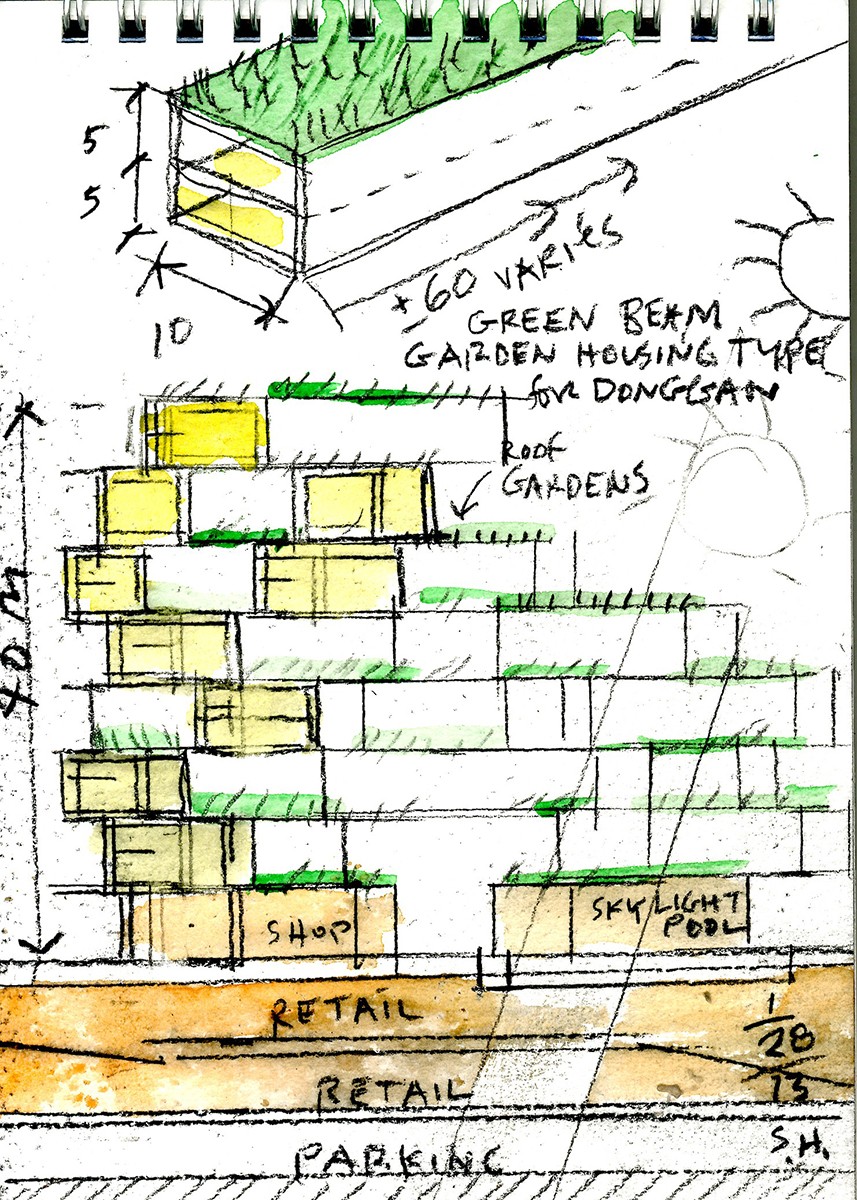 5
5
10
± 60 VARIES
GREEN BEAM
GARDEN HOUSING TYPE
for DONGGSAN
ROOF
GARDENS
40 m
SHOP
SKYLIGHT
POOL
RETAIL
1/28
RETAIL
13
PARKING
S.H.